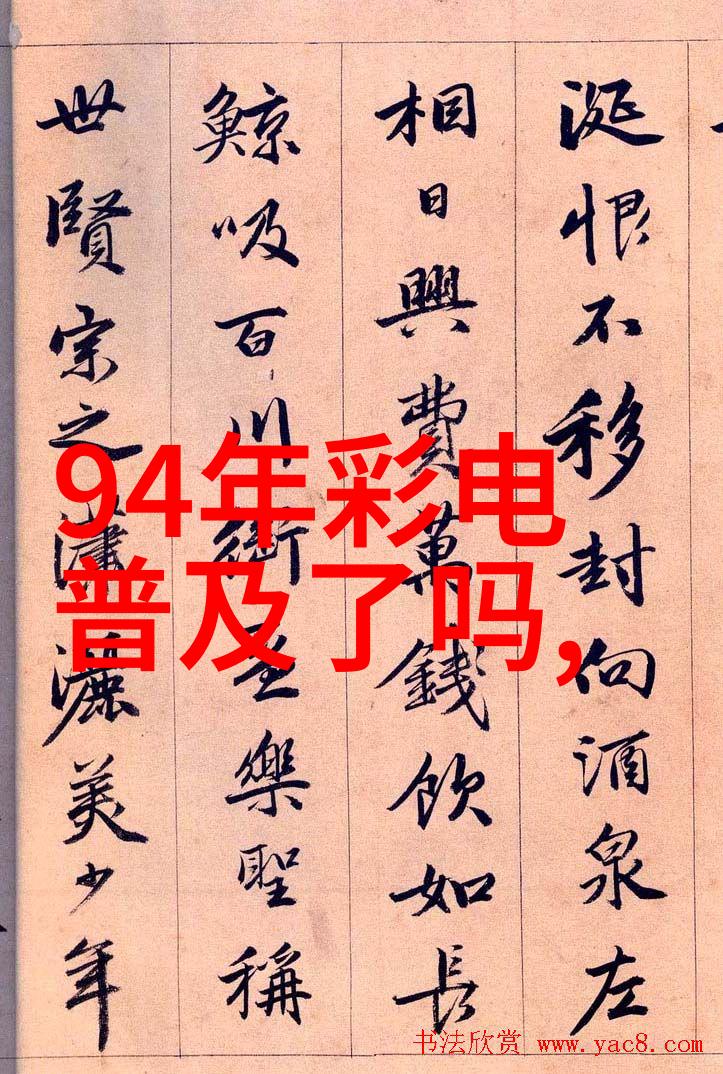 涎恨不移封向酒泉左
相日興費萬錢飲如長
鯨吸百川銜盃樂聖稱
世賢宗之瀟灑美少年
94年彩电
普及了吗,
书法欣赏 www.yac8.com